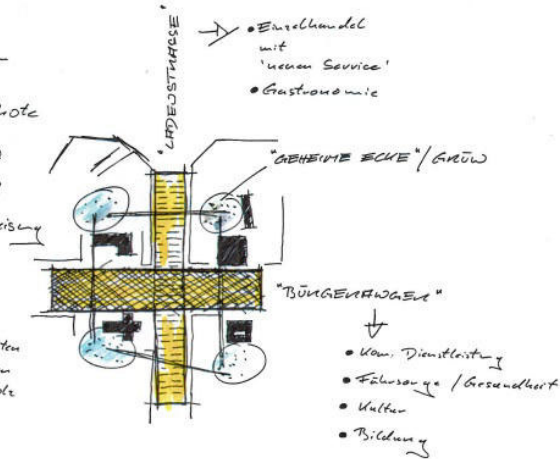 "LADENSTRASSE"
• Einzelhandel
mit
'neuen Service'
• Gastronomie
"GEHEIME ECKE"/GRÜN
"BÜRGERANGER"
• Kom. Dienstleistung
• Fürsorge / Gesundheit
• Kultur
• Bildung